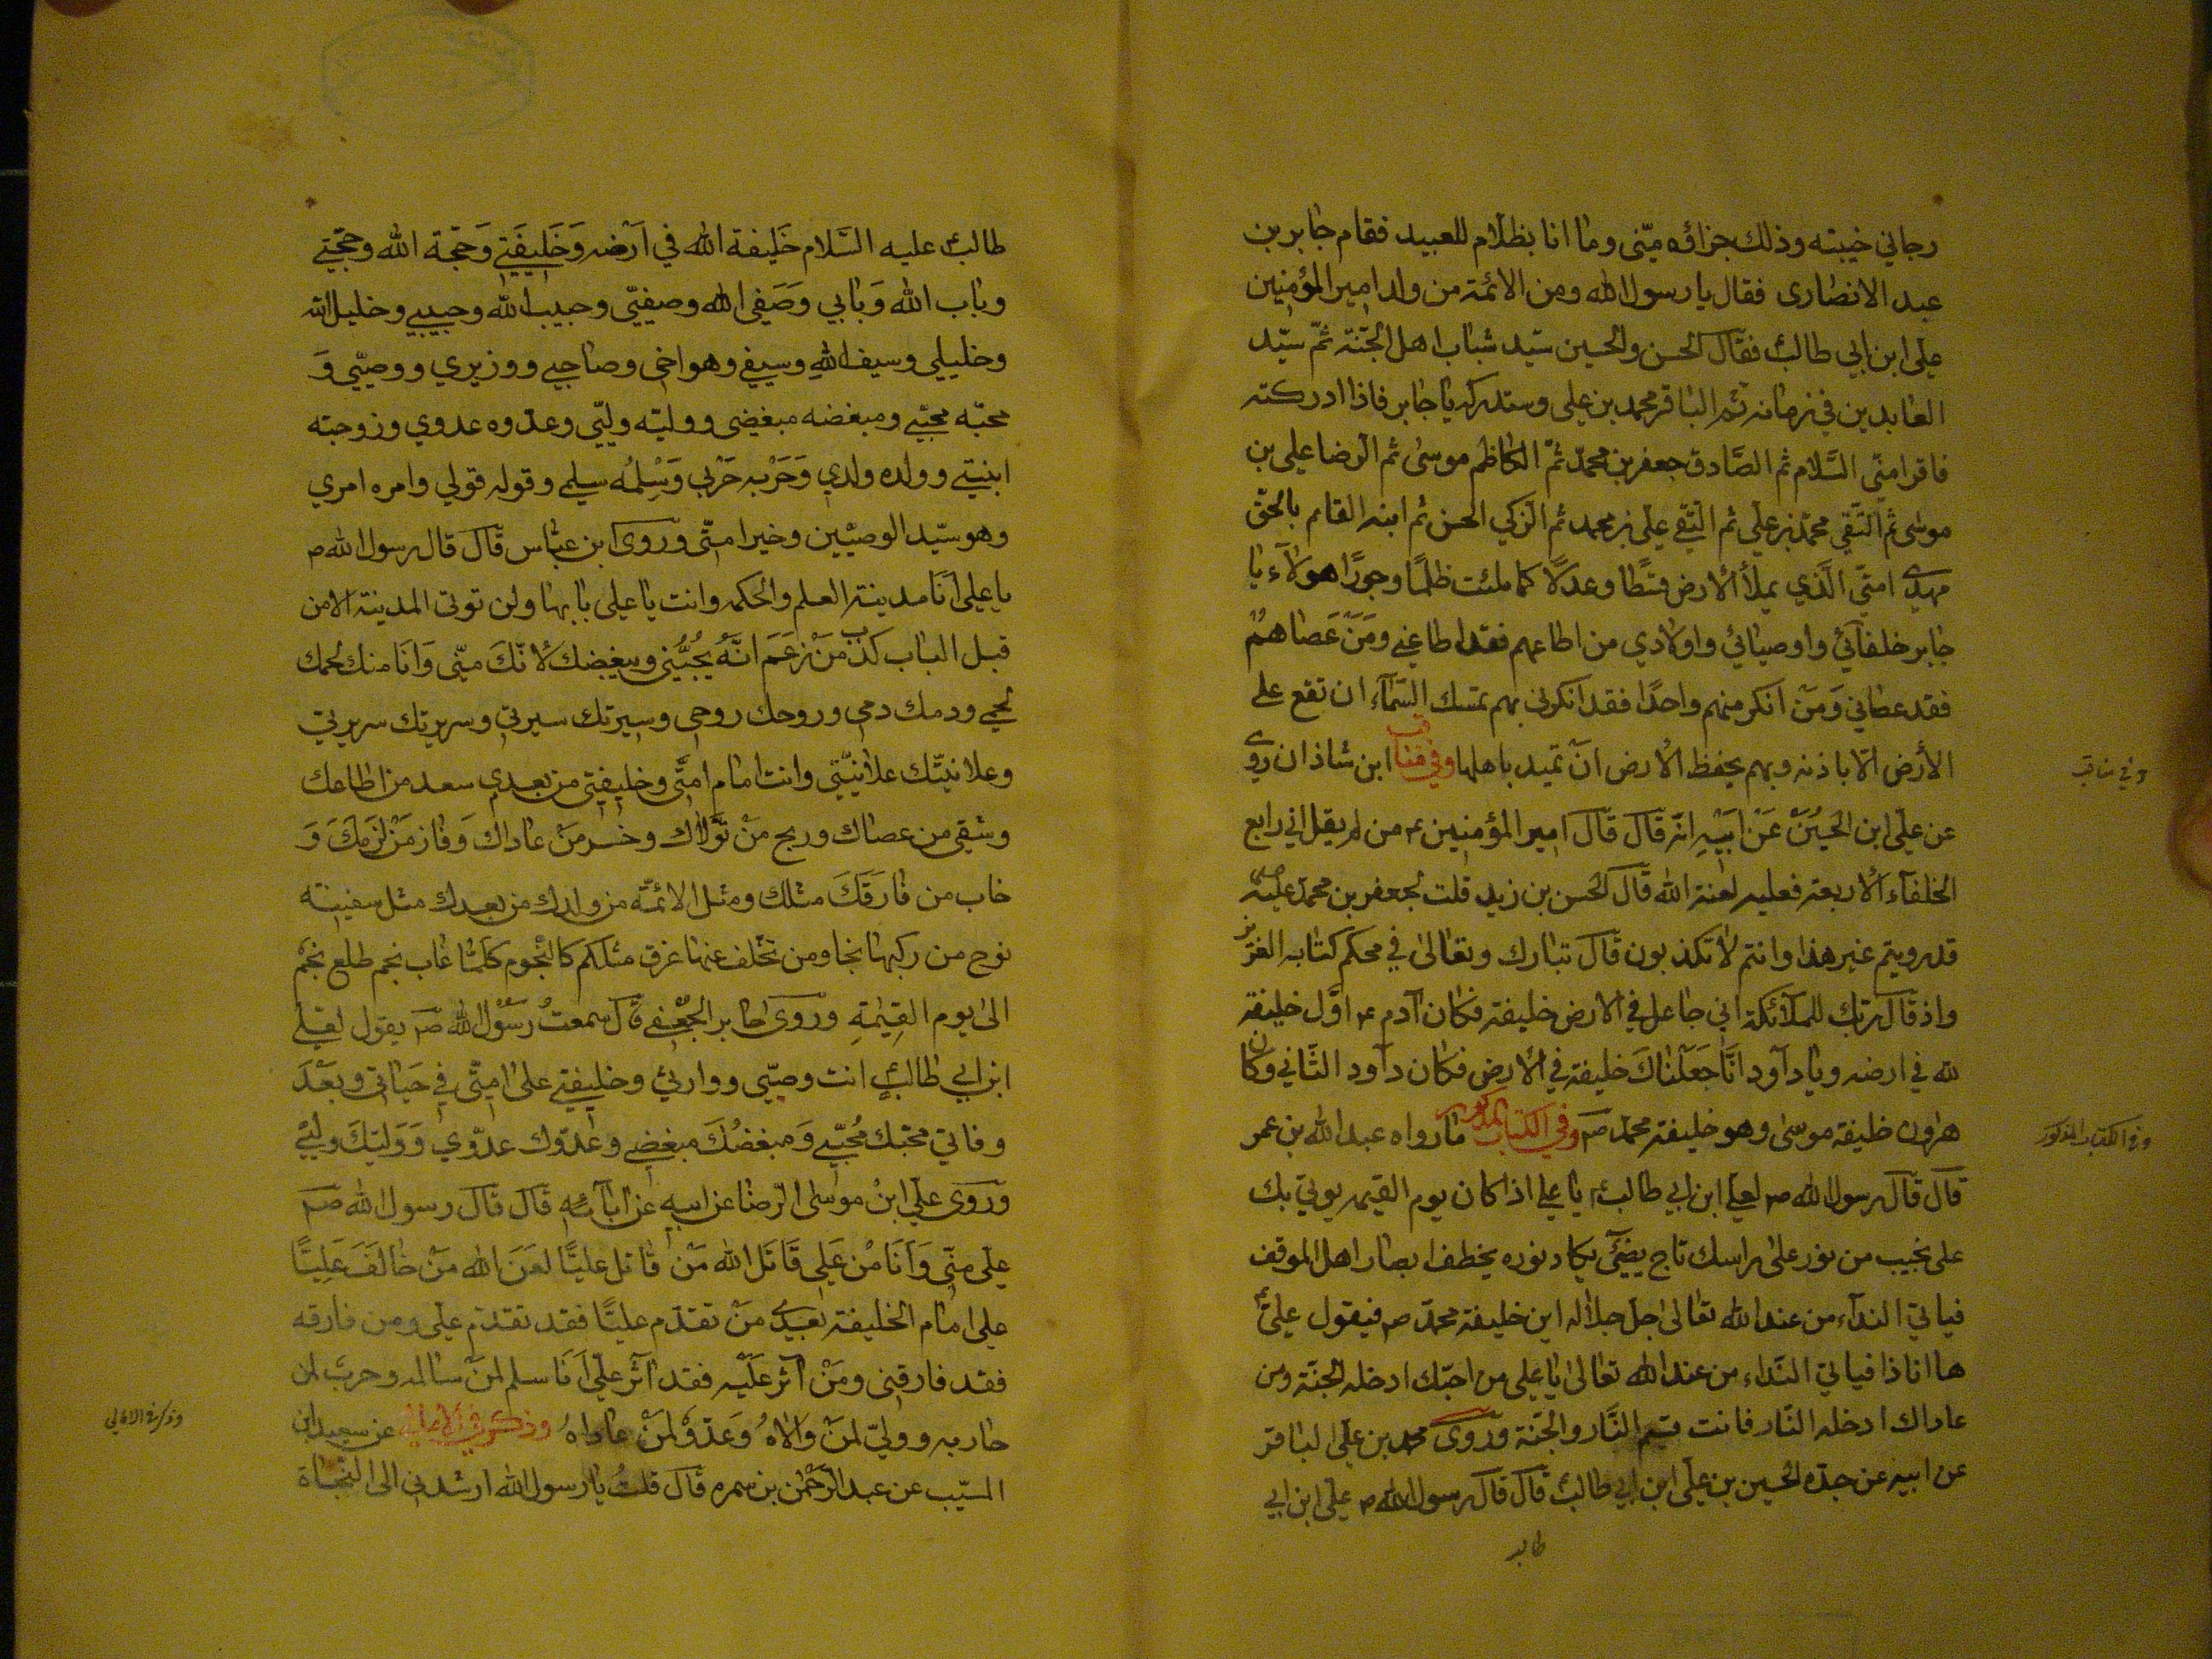 رجاني خيبته وذلك جزاؤه منّى وما انا بظلام للعبيد فقام جابر بن
عبد الانصارى فقال يا رسول الله ومن الائمة من ولد امير المؤمنين
على ابن ابي طالب فقال الحسن والحسين سيّد شباب اهل الجنّة ثمّ سيّد
العابدين في زمانه ثم الباقر محمد بن على وستدركه يا جابر فاذا ادركته
فاقرا منّى السَّلام ثم الصَّادق جعفر بن محمّد ثمّ الكاظم موسى ثم الرضا على بن
موسى ثم التّقي محمّد بن علي ثم النّقي علي بن محمد ثم الزكي الحسن ثم ابنه القايم بالحقّ
مهدي امتّي الَّذي يملأ الأرض قسطًا وعدلًا كما ملئت ظلمًا وجورًا هولآء يا
جابر خلفآئي واوصيائي واولادي من اطاعهم فقد اطاعني ومَنْ عَصاهم
فقد عصاني وَمَنْ انكر منهم واحدًا فقد انكرنى بهم يمسك السّمآء ان تقع على
الأرض الّا باذنه وبهم يحفظ الأرض انْ تميد باهلها وفي مناقب ابن شاذان روي
وفي مناقب
عن علي ابن الحسين عَنْ ابَيْهِ انه قال قال امير المؤمنين ع من لم يقل اني رابع
الخلفآء الأربعة فعليه لعنة الله قال الحسن بن زيد قلت لجعفر بن محمد عليه
قد رويتم غير هذا وانتم لا تكذبون قال تبارك وتعالى في محكم كتابه العزيز
واذ قال ربك للملآئكة اني جاعل في الارض خليفة فكان آدم ع اوّل خليفة
لله في ارضه ويا دآود انّا جَعَلناكَ خليفة في الأرض فكان دآود الثّاني وكان
هرون خليفة موسى وهو خليفة محمّد ص وفي الكتاب المذكور ما رواه عبد الله بن عمر
وفي الكتاب المذكور
قال قال رسول الله ص لعلي ابن ابي طالب ع يا علي اذا كان يوم القيمه يوتي بك
على نجيب من نور على راسك تاج يضيئ يكاد نوره يخطف ابصار اهل الموقف
فياتي الندآء من عند الله تعالى جل جلاله اين خليفة محمّد ص فيقول عليّ ع
ها انا ذا فياتي النّداء من عند الله تعالى يا علي من احبّك ادخله الجنّة ومن
عاداك ادخله النّار فانت قسيم النَّار والجَنّة وروى محمد بن علي الباقر
عن ابيه عن جدّه الحسين بن على ابن ابي طالب قال قال رسول الله ص على ابن ابي
طالب
طالب عليه السَّلام خَليفة الله في اَرْضه وَخَليفَتي وَحجّة الله وحجّتي
وباب الله وَبابي وَصَفي الله وصفيّي وحبيب الله وحبيبي وخليل الله
وخليلي وسيف الله وسيفي وهو اخي وصاحبي ووزيري ووصيّي وَ
محبّه محبّي ومبغضه مبغضي ووليّه وليّي وعدّوه عدوي وزوجته
ابنتي وولده ولدي وَحَرْبه حَرْبي وَسِلْمُه سلمي وقوله قولي وامره امري
وهو سيّد الوصيّين وخير امتّى وروى ابن عبّاس قال قال رسول الله ص
يا على أنَا مدينة العلم والحكمه وانت يا على بابها ولن توتى المدينة الا من
قبل الباب كذب مَنْ زعَمَ انَّهُ يُحِبُّنى ويبغضك لأنّكَ منّى وَانَا منك لحمك
لحمي ودمك دمي وروحك روحي وسيرتك سيرتي وسريرتك سريرتي
وعلانيتك علانيتي وانت امام امتّى وخليفتي من بعدي سعد من اطاعك
وشقي من عصاك وربح مَنْ تَوَلّاك وخسر مَنْ عاداك وَفاز مَنْ لَزمَكَ وَ
خاب من فارَقَكَ مثلك ومثل الائمّة من ولدك من بعدك مثل سفينة
نوح من ركبها نجا ومن تخلّف عنها غرق مثلكم كالنجوم كلمّا غاب نجم طلع نجم
الى يوم القِيٰمَةِ وروى جابر الجعفي قال سمعتُ رسُول الله ص يقول لعلي
ابن ابي طالب انت وصيّي ووارثي وخليفتي على امتّي في حَياتي وبَعْدَ
وفاتي محبّك مُحبّي وَمبغضُكَ مبغضي وعدوّك عدوّي وَوَليّكَ وليّي
وروى علي ابن موسى الرضا عن ابيه عن آبآئه قال قال رسول الله ص
علي منّي وَاَنَا مْن عَلي قَاتَل الله مَنْ قاتل عليًّا لعَنَ الله مَنْ خالَفَ عَلِيًّا
على امام الخليفة بعدي مَنْ تقدّم عليًّا فقد تقدّم علي ومن فارقه
فقد فارقنى ومَنْ آثر علَيْه فقد آثر عليّ اَنَا سلم لمنْ سالمه وحربٌ لمن
حاربه ووليّ لمنْ والاهُ وَعَدوّ لمنْ عاداهُ وذكر في الامالي عن سعيد ابن
وذكر في الامالي
المسيّب عن عبد الرَّحْمٰن بن سمره قال قلتُ يا رسول الله ارشدني الى النّجاة